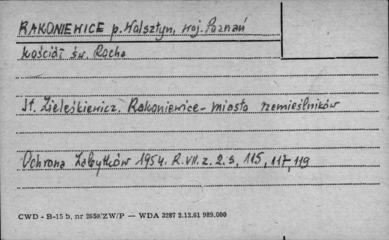 RAKONIEWICE p. Wolsztyn, woj. Poznań
kościół św. Rocha
St. Zieleśkiewicz. Rakoniewice - miasto rzemieślników
Ochrona Zabytków 1954. R. VII. z. 2. s, 115, 117, 119
CWD - B-15 b, nr 2659/ZW/P — WDA 3287 2.12.61 989.000